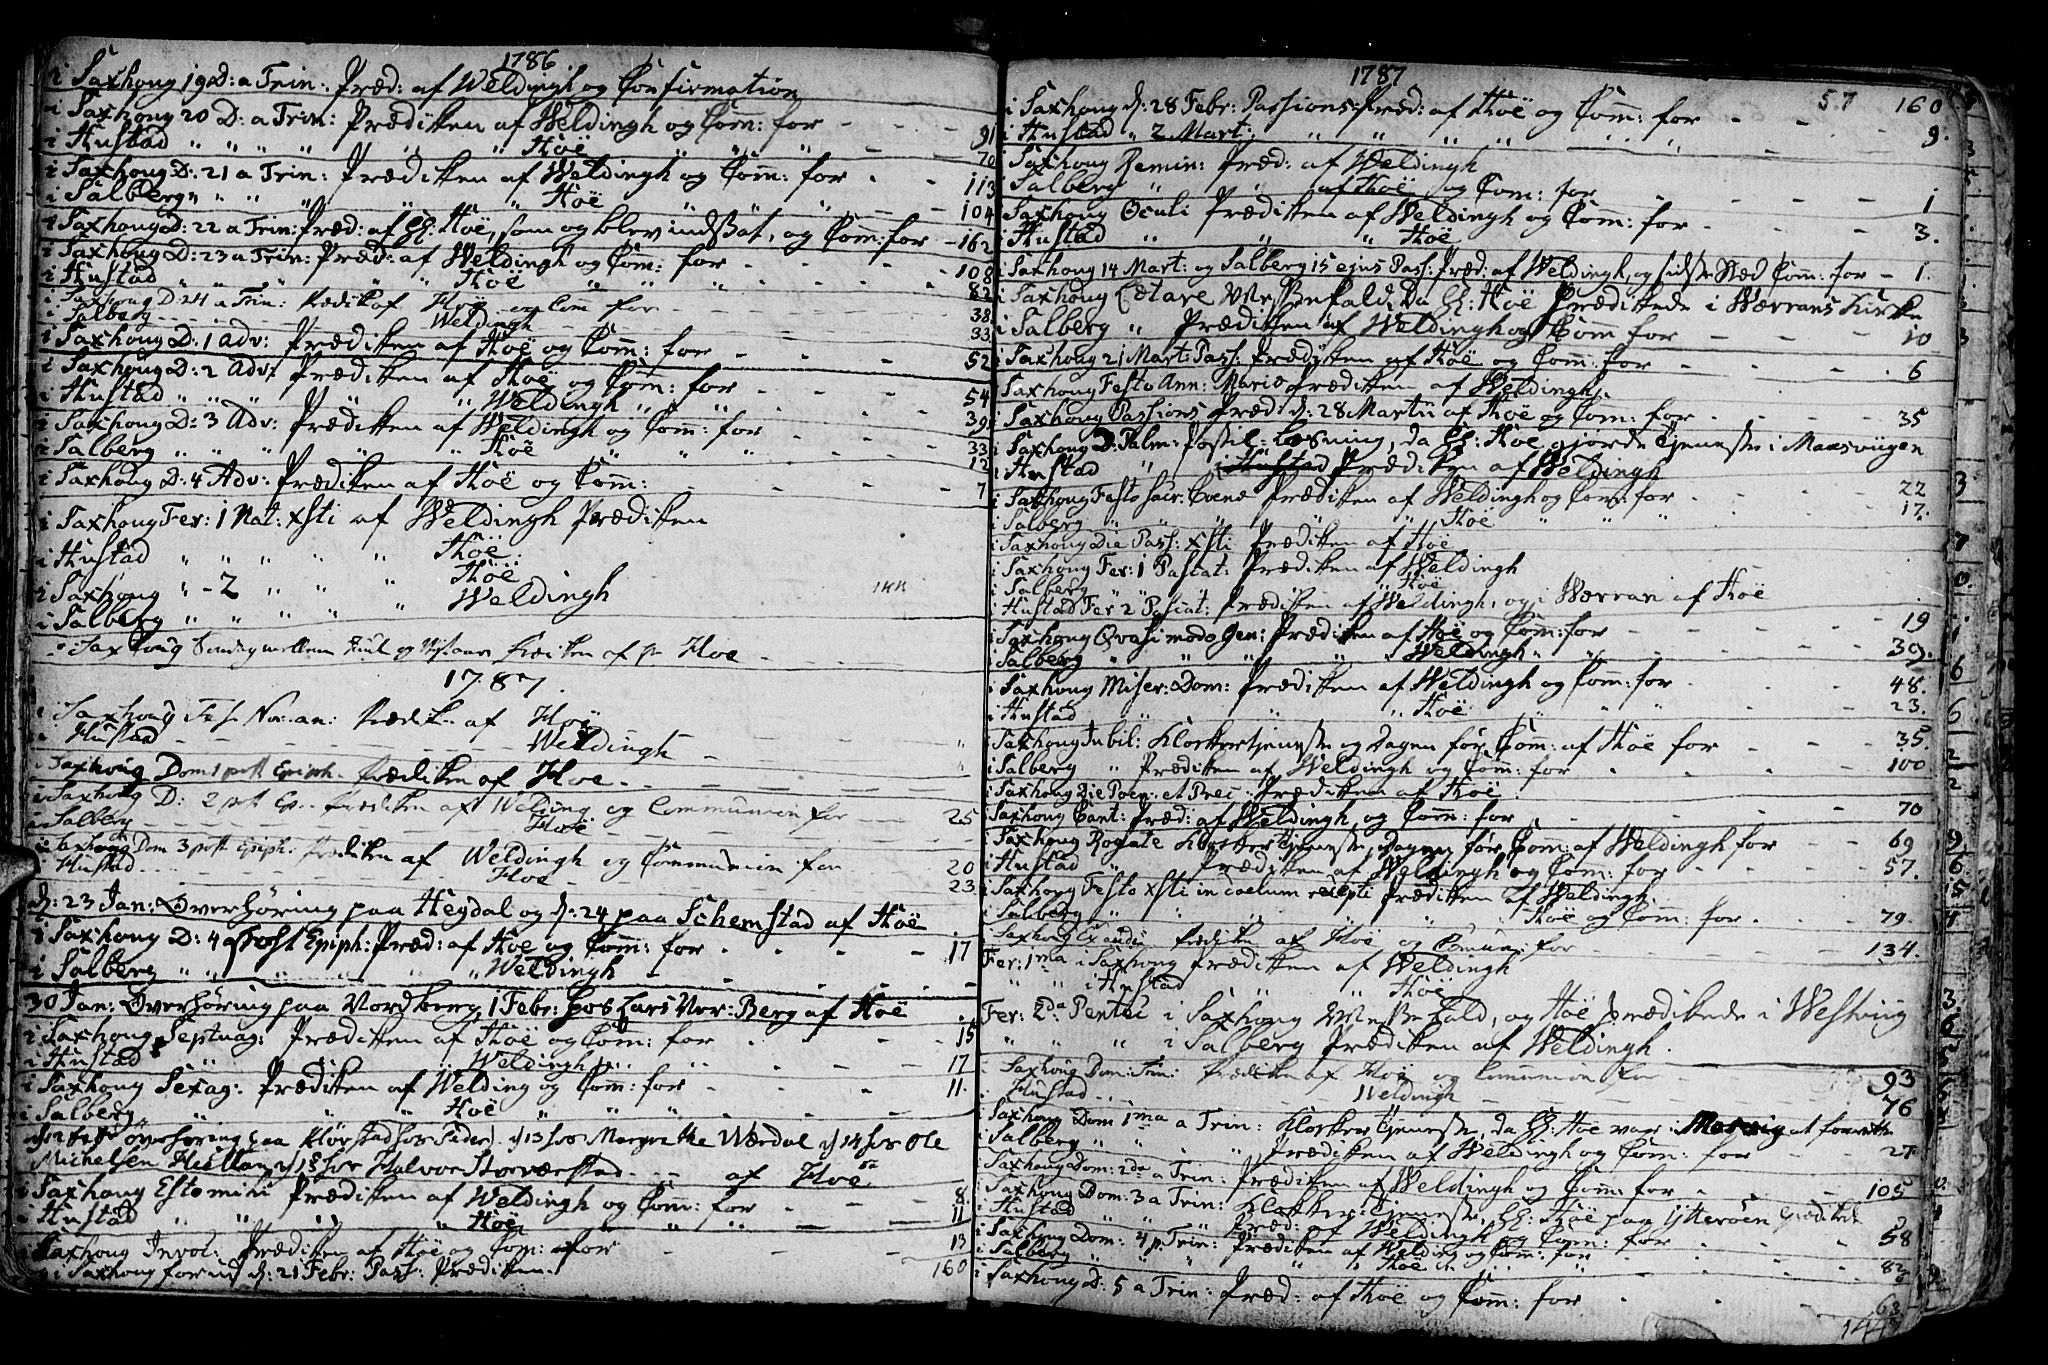 1786
i Saxhoug 19 D: a Trin: Præd: af Weldingh og Confirmation
i Saxhoug 20 D: a Trin: Prædiken af Weldingh og Com̄: for - - - 91
i Hustad " " " " " " Hoë " " " - - 70
i Saxhoug D: 21 a Trin: Prædiken af Weldingh og Com̄: for - - 113
i Salberg " " " " " " Hoë " " " - - 104
i Saxhoug D: 22 a Trin: Præd: af H: Hoë, som og blev indsat, og Com̄: for - 162
i Saxhoug D: 23 a Trin: Præd: af Weldingh og Com̄: for - - - 108
i Hustad " " " " " Hoë " " " - - - 82
i Saxhoug D 24 a Trin: Prædik af Hoë og Com for - - - 38
i Salberg - - - Weldingh - - - 33
i Saxhoug D: 1 Adv: Prædiken af Hoë og Com̄: for - - - 52
i Saxhoug D: 2 Adv: Prædiken af Hoë og Com̄: for - - -
i Hustad " " " " Weldingh " " - - - 54
i Saxhoug D: 3 Adv: Prædiken af Weldingh og Com̄: for - - - 39
i Salberg " " " " " Hoë " " " - - - 33
12
i Saxhoug D: 4 Adv: Prædiken af Hoë og Com̄: - - - 7
i Saxhoug Fer: 1 Nat: Xsti af Weldingh Prædiken
i Hustad " " " " " Hoë
i Saxhoug " - 2 " " " Hoë
i Salberg " " " " " Weldingh
i Saxhoug Sondag mellem Juul og Nytaar Prædiken af Hr Hoe -
1787.
i Saxhoug Fest Nov: an: Prædik: af Hoë
i Hustad - - - Weldingh -
i Saxhoug Dom 1 post Epiph. Prædiken af Hoe -
i Saxhoug D: 2 post Ep: Prædiken af Welding og Communion for - - 25
i Salberg - - - Hoë
i Saxhoug Dom 3 post Epiph: Prædiken af Weldingh og Communion for 20
i Hustad - - - Hoe - - - 23
d: 23 Jan: Overhöring paa Heydal og d: 24 paa Schemstad af Hoë
i Saxhoug D: 4 post Epiph: Præd: af Hoë og Com̄: for - - - 17
i Salberg " " " " " Weldingh
30 Jan: Overhöring paa Nordberg, 1 Febr: hos Lars Nor: Berg af Hoë
i Saxhoug Septuag: Prædiken af Hoë og Com̄: for - - - 15
i Hustad " " Weldingh " - - - 17
i Saxhoug Sexag: Prædiken af Welding og Com̄: for - - - 11.
i Salberg " " " Hoë " " " "
d 12 Febr overhøring paa hos Peder d 13 hos Margrethe Wærdal d 14 hos Ole
Michelsen d 15 hos Halvor - - - af Hoe
i Saxhoug Estomihi Prædiken af Weldingh og Com̄: for - - - 8.
i Hustad " " " " Hoë " " - - 11
i Saxhoug Invoc: Prædiken af Hoë og Com: for - - - 13
i Saxhoug forud d: 21 Febr: Pass: Prædiken. 160
1787
57 160
i Saxhoug d: 28 Febr: Passions: Præd: af Hoë og Com̄: for - - -
i Hustad " 2 Mart: " " " " " " 9.
i Saxhoug Remin: Præd: af Weldingh
i Salberg " " af Hoë og Com: for - - - 1
i Saxhoug Oculi Prædiken af Weldingh og Com̄: for - - -
i Hustad " " " Hoë - - - 3.
i Saxhoug 14 Mart: og Salberg 15 ejus Pass: Præd: af Weldingh, og sidste Stæd Com: for - 1.
i Saxhoug Lætare Messefald, da H: Hoë Prædikede i Wærrans Kirke
i Salberg " Prædiken af Weldingh og Com̄ for - - 10
i Saxhoug 21 Mart: Pass: Prædiken af Hoë og Com̄: for - - - 6
i Saxhoug Festo Ann: Mariæ Prædiken af Weldingh.
i Saxhoug Passions Præd: d: 28 Martii af Hoë og Com: for - - - 35
i Saxhoug D: Palm: Postil-Læsning, da H: Hoe gjorde Tjeneste i
i Hustad " Prædiken af Weldingh
i Saxhoug Festo Sacr: Coenæ Prædiken af Weldingh og Com̄: for - - - 22
i Salberg " " " " " Hoë " " " 17.
i Saxhoug Die Pass: Xsti Prædiken af Hoë
i Saxhoug Fer: 1 Pascat: Prædiken af Weldingh
i Salberg " " " Hoë
i Hustad Fer 2 Pascat: Prædiken af Weldingh, og i Wærran af Hoë
i Saxhoug Qvasimodo Gen: Prædiken af Hoë og Com̄: for - - - 19
i Salberg " " " " Weldingh " " - - 39.
i Saxhoug Miser: Dom: Prædiken af Weldingh og Com̄: for - - - 48.
i Hustad " " " Hoë " " " 23.
i Saxhoug Jubil: Klokkertjeneste og Dagen før Com̄: af Hoë for - - 35.
i Salberg " Prædiken af Weldingh og Com̄: for - - - 100
i Saxhoug Die Poen: et Prec: Prædiken af Hoë
i Saxhoug Cant: Præd: af Weldingh og Com̄: for - - - 70
i Saxhoug Rogate Klokkertjeneste, Dagen før Com̄: af Weldingh for - - 69
i Hustad " Prædiken af Weldingh og Com: for - - - 57.
i Saxhoug Festo Xsti in coelum recepti Prædiken af Weldingh.
i Salberg " " " " " Hoë og Com̄: for - - 79.
i Saxhoug Exaudi Prædiken af Hoë og Comun: for - - 134.
Fer: 1ma i Saxhoug Prædiken af Weldingh
" " i Hustad " Hoë
Fer: 2da Pentec i Saxhoug Messefald, og Hoë prædikede i Westvig
" " " i Salberg Prædiken af Weldingh.
i Saxhoug Dom: Trin: Prædiken af Hoë og Communion for - 93
i Hustad - - - Weldingh - - - 76
i Saxhoug Dom 1ma a Trin: Klokker Tjeneste, da H: Hoe var
i Salberg " " " Prædiken af Weldingh og Com: for - - 27
i Saxhoug Dom: 2da a Trin: Prædiken af Weldingh og Com̄: for - - 105
i Saxhoug Dom: 3 a Trin: Klokker Tjeneste, H: Hoë paa Ytterøen Prædikede
i Hustad " " " Præd: af Weldingh og Com̄: for - - 58
i Saxhoug Dom: 4 p. Trin: Prædiken af Welding og Com̄: for - -
i Salberg " " " Hoë " " " 82
i Saxhoug D: 5 a Trin: Præd: af Hoë og Com̄: for - - - 63